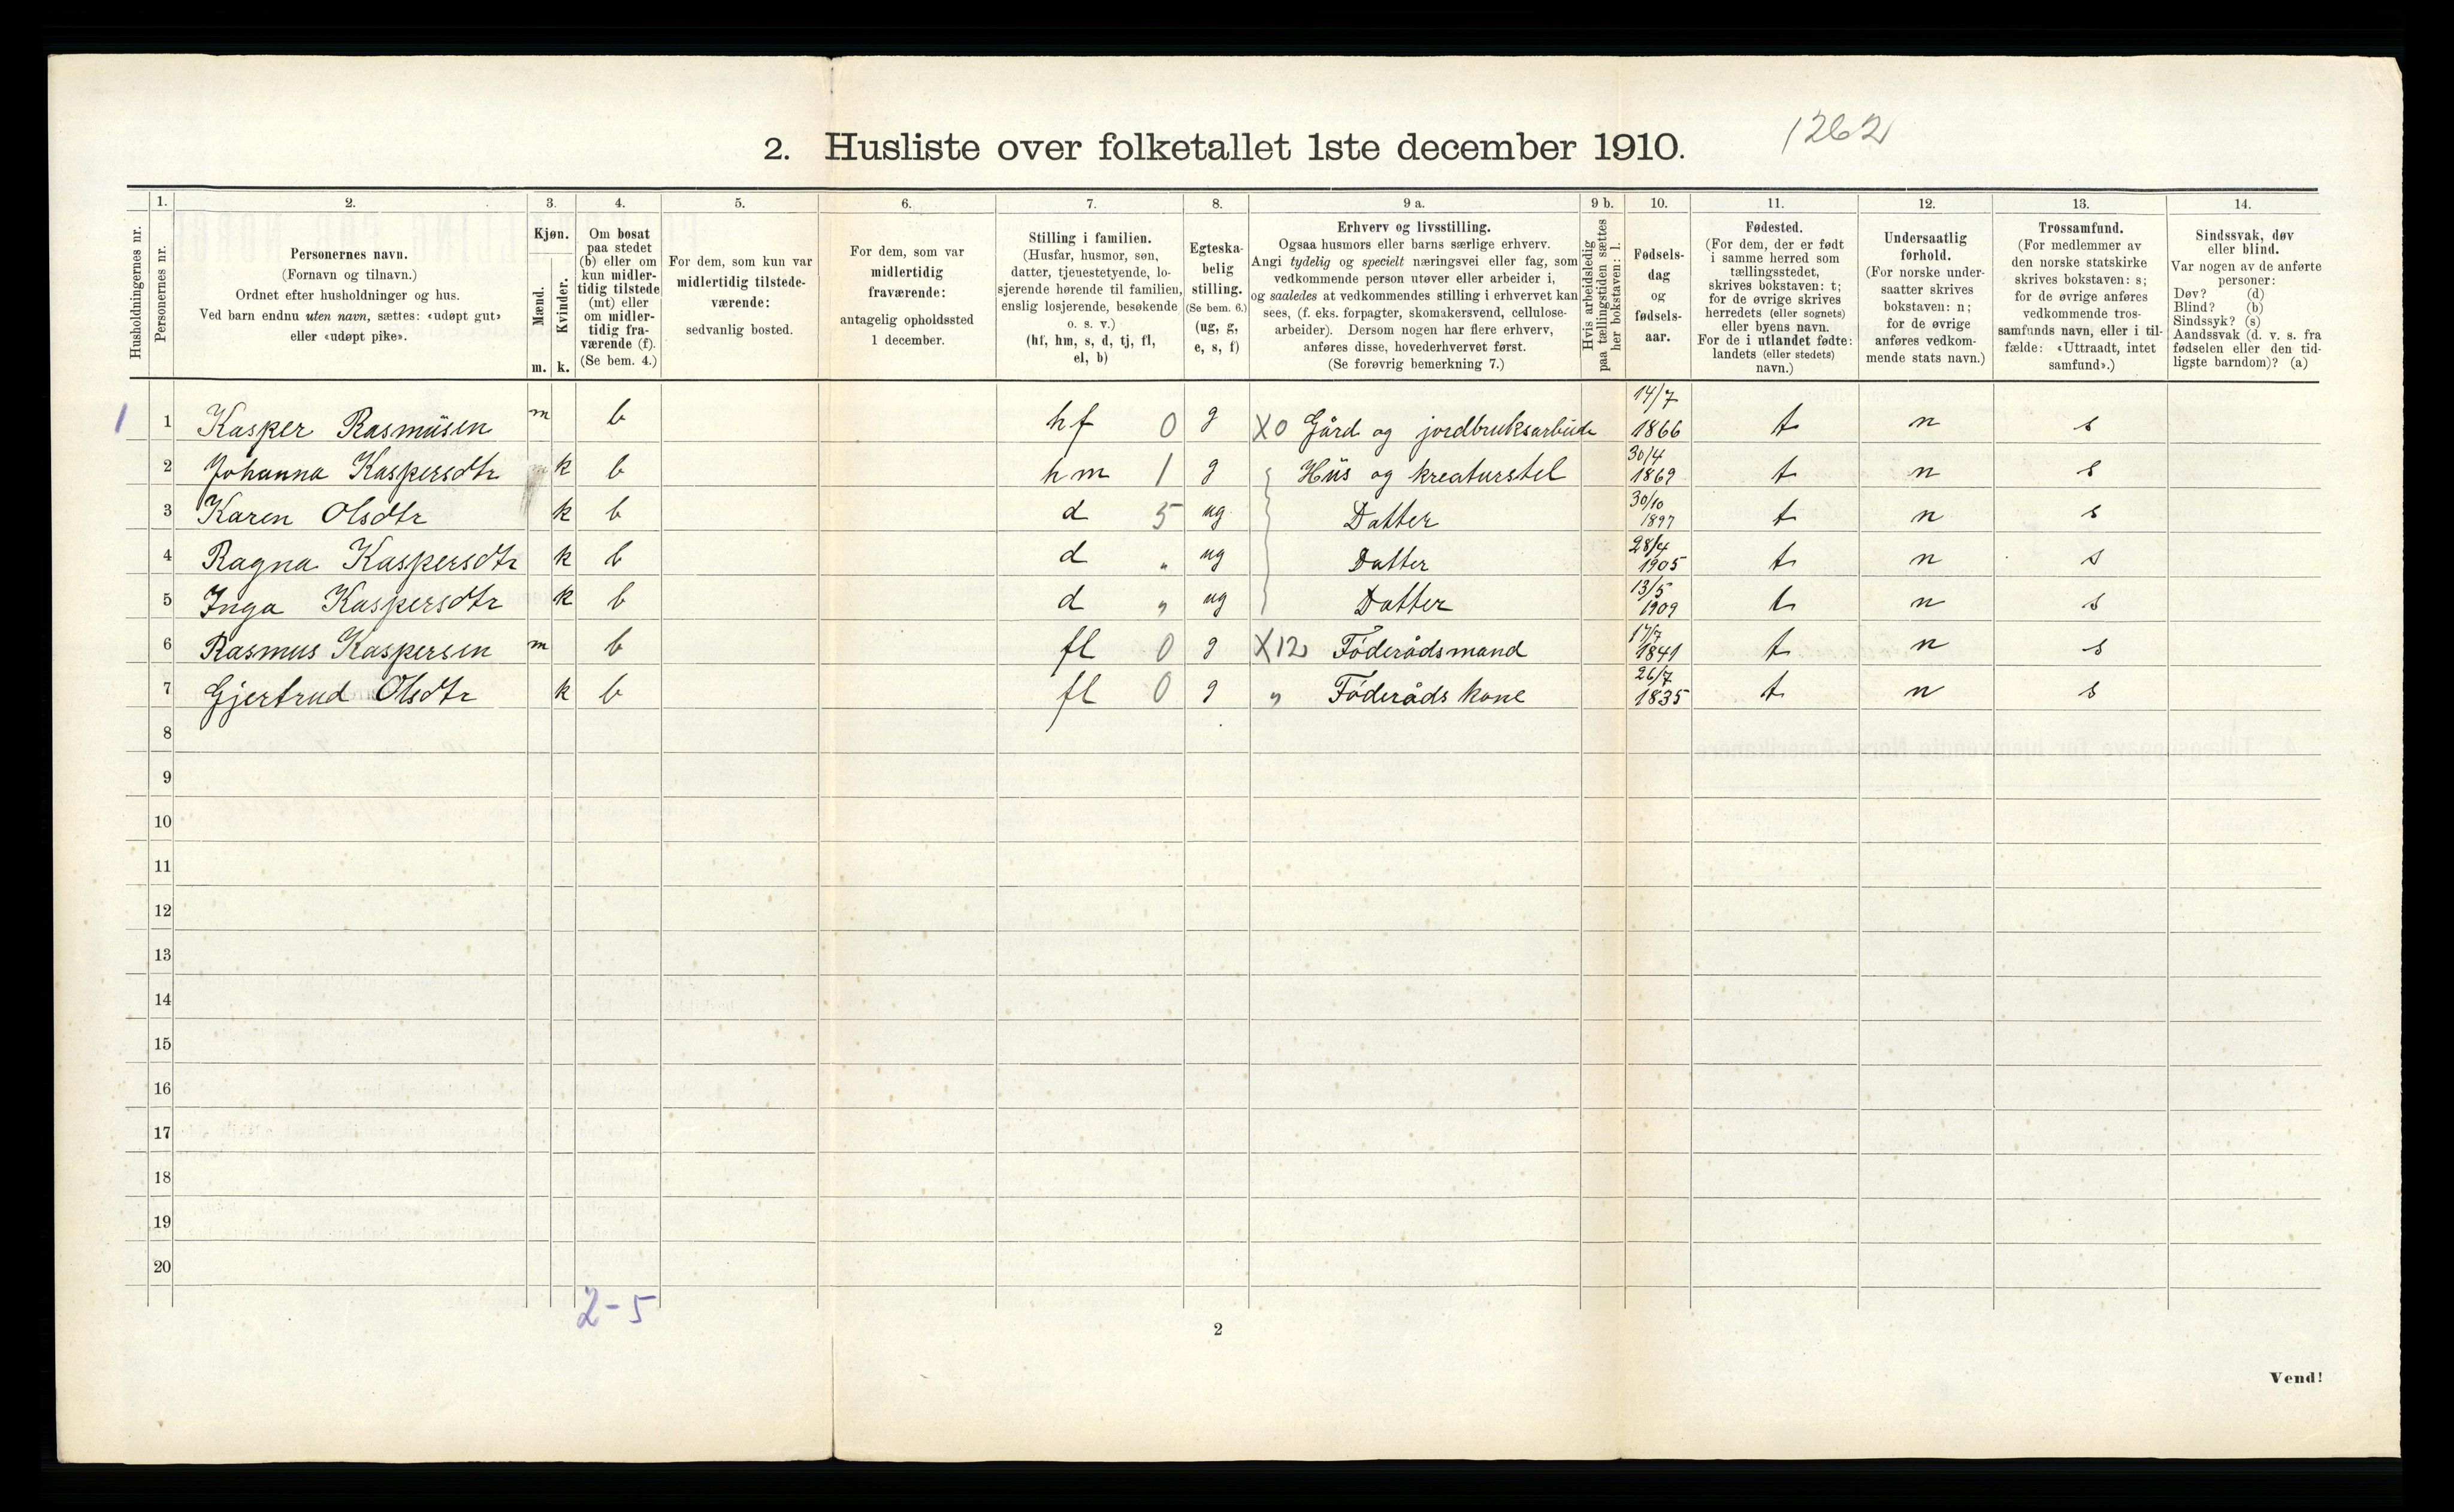 1262
2. Husliste over folketallet 1ste december 1910.
Husholdningernes nr.
1. 2. 3. 4. 5. 6. 7. 8. 9 a. 9 b. 10. 11. 12. 13. 14.
Personernes nr.
Personernes navn.
(Fornavn og tilnavn.)
Ordnet efter husholdninger og hus.
Ved barn endnu uten navn, sættes: «udøpt gut»
eller «udøpt pike».
Kjøn.
Mænd.
Kvinder.
m. k.
Om bosat
paa stedet
(b) eller om
kun midler-
tidig tilstede
(mt) eller
om midler-
tidig fra-
værende (f).
(Se bem. 4.)
For dem, som kun var
midlertidig tilstede-
værende:
sedvanlig bosted.
For dem, som var
midlertidig
fraværende:
antagelig opholdssted
1 december.
Stilling i familien.
(Husfar, husmor, søn,
datter, tjenestetyende, lo-
sjerende hørende til familien,
enslig losjerende, besøkende
o. s. v.)
(hf, hm, s, d, tj, fl,
el, b)
Egteska-
belig
stilling.
(Se bem. 6.)
(ug, g,
e, s, f)
Erhverv og livsstilling.
Ogsaa husmors eller barns særlige erhverv.
Angi tydelig og specielt næringsvei eller fag, som
vedkommende person utøver eller arbeider i,
og saaledes at vedkommendes stilling i erhvervet kan
sees, (f. eks. forpagter, skomakersvend, cellulose-
arbeider). Dersom nogen har flere erhverv,
anføres disse, hovederhvervet først.
(Se forøvrig bemerkning 7.)
Hvis arbeidsledig
paa tællingstiden sættes
her bokstaven: l.
Fødsels-
dag
og
fødsels-
aar.
Fødested.
(For dem, der er født
i samme herred som
tællingsstedet,
skrives bokstaven: t;
for de øvrige skrives
herredets (eller sognets)
eller byens navn.
For de i utlandet fødte:
landets (eller stedets)
navn.)
Undersaatlig
forhold.
(For norske under-
saatter skrives
bokstaven: n;
for de øvrige
anføres vedkom-
mende stats navn.)
Trossamfund.
(For medlemmer av
den norske statskirke
skrives bokstaven: s;
for de øvrige anføres
vedkommende tros-
samfunds navn, eller i til-
fælde: «Uttraadt, intet
samfund».)
Sindssvak, døv
eller blind.
Var nogen av de anførte
personer:
Døv? (d)
Blind? (b)
Sindssyk? (s)
Aandssvak (d. v. s. fra
fødselen eller den tid-
ligste barndom)? (a)
1 1 Kasper Rasmüsen m b hf 0 g X0 Gård og jordbruksarbeide 14/7 1866 t n s
2 Johanna Kaspersdtr k b hm 1 g Hüs og kreaturstel 30/4 1869 t n s
3 Karen Olsdtr k b d 5 ug Datter 30/10 1897 t n s
4 Ragna Kaspersdtr k b d " ug Datter 28/4 1905 t n s
5 Inga Kaspersdtr k b d " ug Datter 13/5 1909 t n s
6 Rasmus Kaspersen m b fl 0 g X12 Föderådsmand 17/7 1841 t n s
7 Gjertrud Olsdtr k b fl 0 g " Föderåds kone 26/7 1835 t n s
8
9
10
11
12
13
14
15
16
17
18
19
20
2-5
2
Vend!